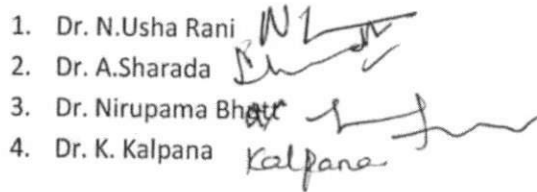 1. Dr. N.Usha Rani
2. Dr. A.Sharada
3. Dr. Nirupama Bhatt
4. Dr. K. Kalpana Kalpana